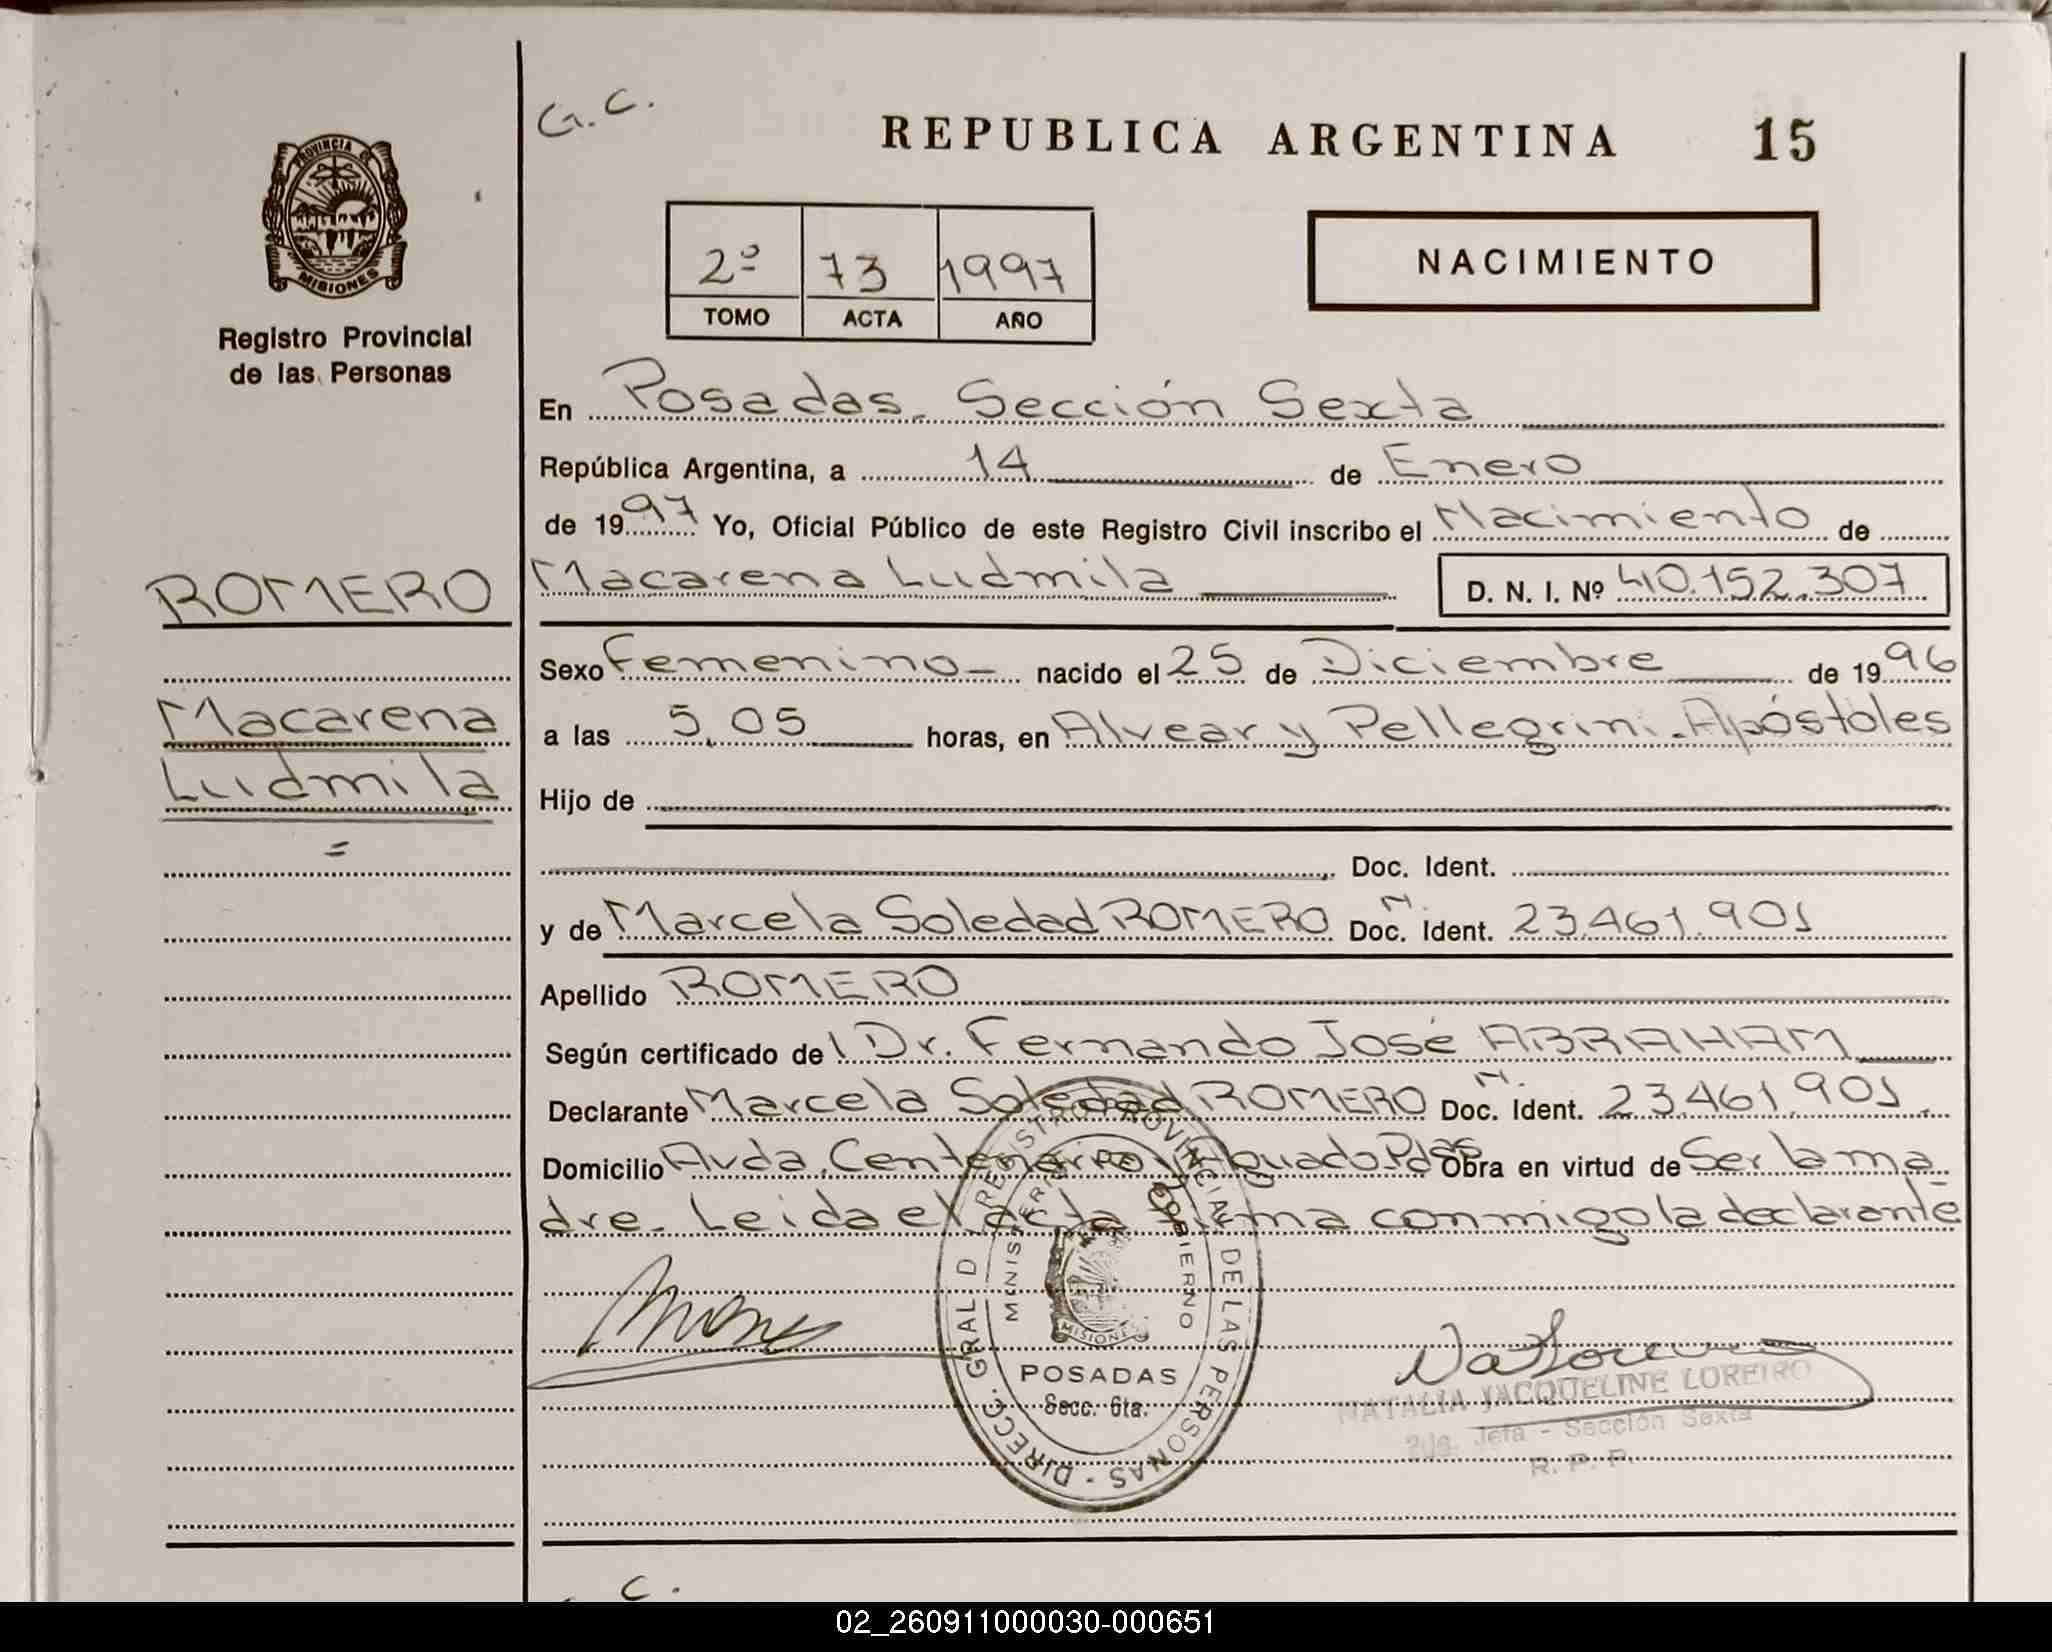 G. C.
REPUBLICA ARGENTINA 15
PROVINCIA DE
MISIONES
Registro Provincial
de las Personas
2º 73 1997
TOMO ACTA AÑO
NACIMIENTO
En Posadas. Sección Sexta
República Argentina, a 14 de Enero
de 1997 Yo, Oficial Público de este Registro Civil inscribo el Nacimiento de
ROMERO
Macarena Ludmila D. N. I. Nº 40.152.307
Sexo Femenino nacido el 25 de Diciembre de 1996
Macarena
a las 5,05 horas, en Alvear y Pellegrini. Apóstoles
Ludmila
Hijo de
=
Doc. Ident.
y de Marcela Soledad ROMERO Doc. Ident. 23.461.901
Apellido ROMERO
Según certificado de Dr. Fernando José ABRAHAM
Declarante Marcela Soledad ROMERO Doc. Ident. 23.461.901.
Domicilio Avda. Centenario y Aguado Pdas Obra en virtud de Ser la ma
dre. Leida el acta firma conmigo la declarante
DIRECC. GRAL D REGISTRO PROVINCIAL DE LAS PERSONAS
MINISTERIO DE GOBIERNO
MISIONES
POSADAS
Secc. 6ta.
NATALIA JACQUELINE LOREIRO
2da. Jefa - Sección Sexta
R. P. P.
C.
02_260911000030-000651